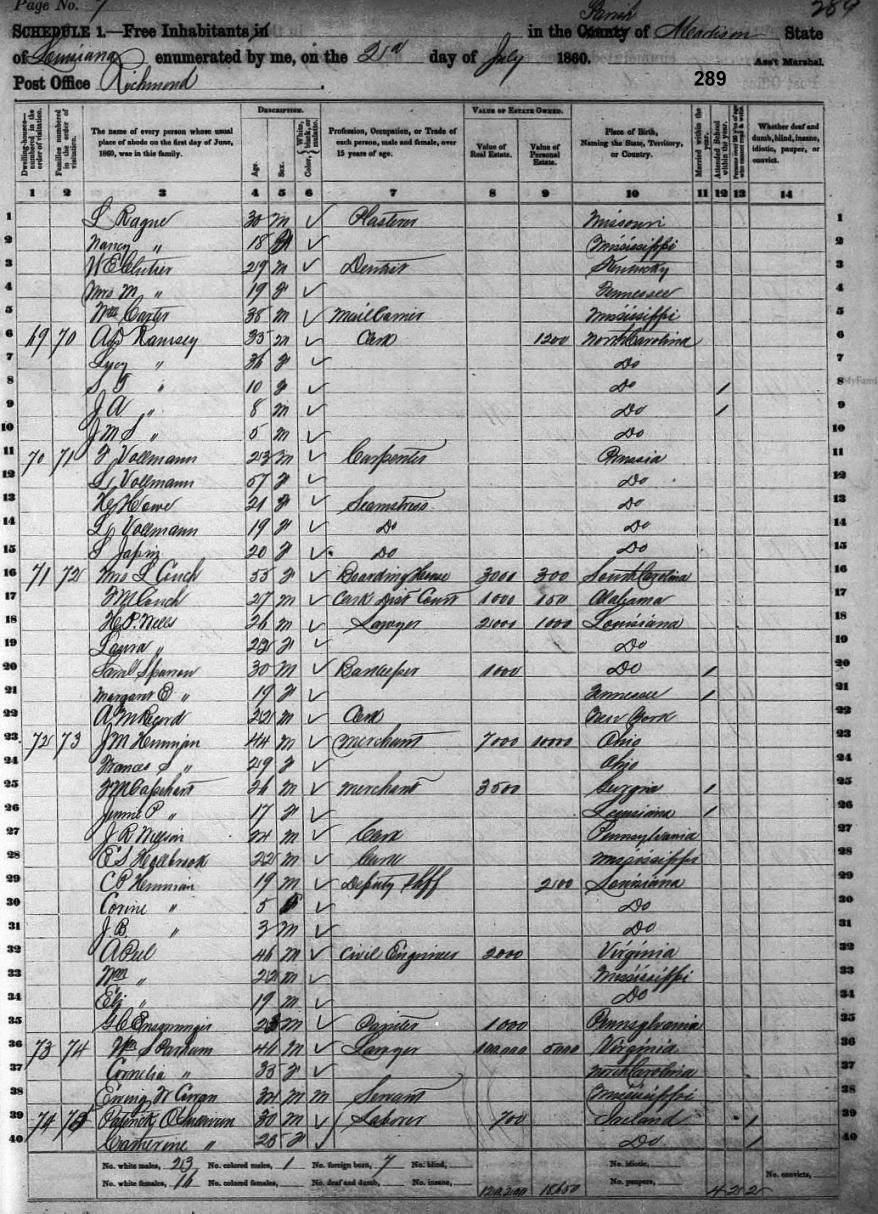 Page No. 7 289
SCHEDULE 1.—Free Inhabitants in in the Parish County of Madison State
of Louisiana enumerated by me, on the 21st day of July 1860. Ass't Marshal.
Post Office Richmond 289
Dwelling-houses—numbered in the order of visitation.
Families numbered in the order of visitation.
The name of every person whose usual place of abode on the first day of June, 1860, was in this family.
DESCRIPTION.
Age. Sex. Color, White, black, or mulatto.
Profession, Occupation, or Trade of each person, male and female, over 15 years of age.
VALUE OF ESTATE OWNED.
Value of Real Estate. Value of Personal Estate.
Place of Birth, Naming the State, Territory, or Country.
Married within the year. Attended School within the year.
Whether deaf and dumb, blind, insane, idiotic, pauper, or convict.
1 2 3 4 5 6 7 8 9 10 11 12 13 14
1 L Ragne 30 M ✓ Plasterer Missouri 1
2 Nancy " 18 F ✓ Mississippi 2
3 W E 29 M ✓ Dentist Kentucky 3
4 Mrs M " 19 F ✓ Tennessee 4
5 Wm Carter 38 M ✓ Mail Carrier Mississippi 5
6 69 70 Ramsey 35 M ✓ Clerk 1200 North Carolina 6
7 Lucy " 36 F ✓ Do 7
8 S F " 10 F ✓ Do / 8
9 J A " 8 M ✓ Do / 9
10 J M S " 5 M ✓ Do 10
11 70 71 F Vollmann 23 M ✓ Carpenter Prussia 11
12 L Vollmann 57 F ✓ Do 12
13 Howe 21 F ✓ Seamstress Do 13
14 L Vollmann 19 F ✓ Do Do 14
15 20 F ✓ Do Do 15
16 71 72 Mrs L Couch 55 F ✓ Boarding House 3000 300 South Carolina 16
17 F M Couch 27 M ✓ Clerk Dist Court 1000 150 Alabama 17
18 H P Wells 26 M ✓ Lawyer 2000 1000 Louisiana 18
19 Laura " 22 F ✓ Do 19
20 Saml 30 M ✓ Barkeeper 1000 Do / 20
21 Margaret E " 19 F ✓ Tennessee / 21
22 A M Record 22 M ✓ Clerk New York 22
23 72 73 J M Hennman 44 M ✓ Merchant 7000 10000 Ohio 23
24 Frances S " 29 F ✓ Ohio 24
25 Capehart 26 M ✓ Merchant 3500 Georgia / 25
26 Jennie P " 17 F ✓ Louisiana / 26
27 J R 24 M ✓ Clerk Pennsylvania 27
28 22 M ✓ Clerk Mississippi 28
29 C P Hennman 19 M ✓ Deputy Shff 200 Louisiana 29
30 Corine " 5 F ✓ Do 30
31 J B " 3 M ✓ Do 31
32 A 46 M ✓ Civil Engineer 2000 Virginia 32
33 Wm " 22 M ✓ Mississippi 33
34 Eli " 19 M ✓ Do 34
35 G C Ensminger 23 M ✓ Painter 1000 Pennsylvania 35
36 73 74 Wm S Parham 46 M ✓ Lawyer 100,000 5000 Virginia 36
37 Cornelia " 33 F ✓ North Carolina 37
38 34 M M Servant Mississippi 38
39 74 75 Patrick 30 M ✓ Laborer 700 Ireland / 39
40 Catherine " 25 F ✓ Do / 40
No. white males, 23 No. colored males, 1 No. foreign born, 7 No. blind, No. idiotic, No. convicts,
No. white females, 16 No. colored females, No. deaf and dumb, No. insane, 18650 No. paupers, 4 2 2